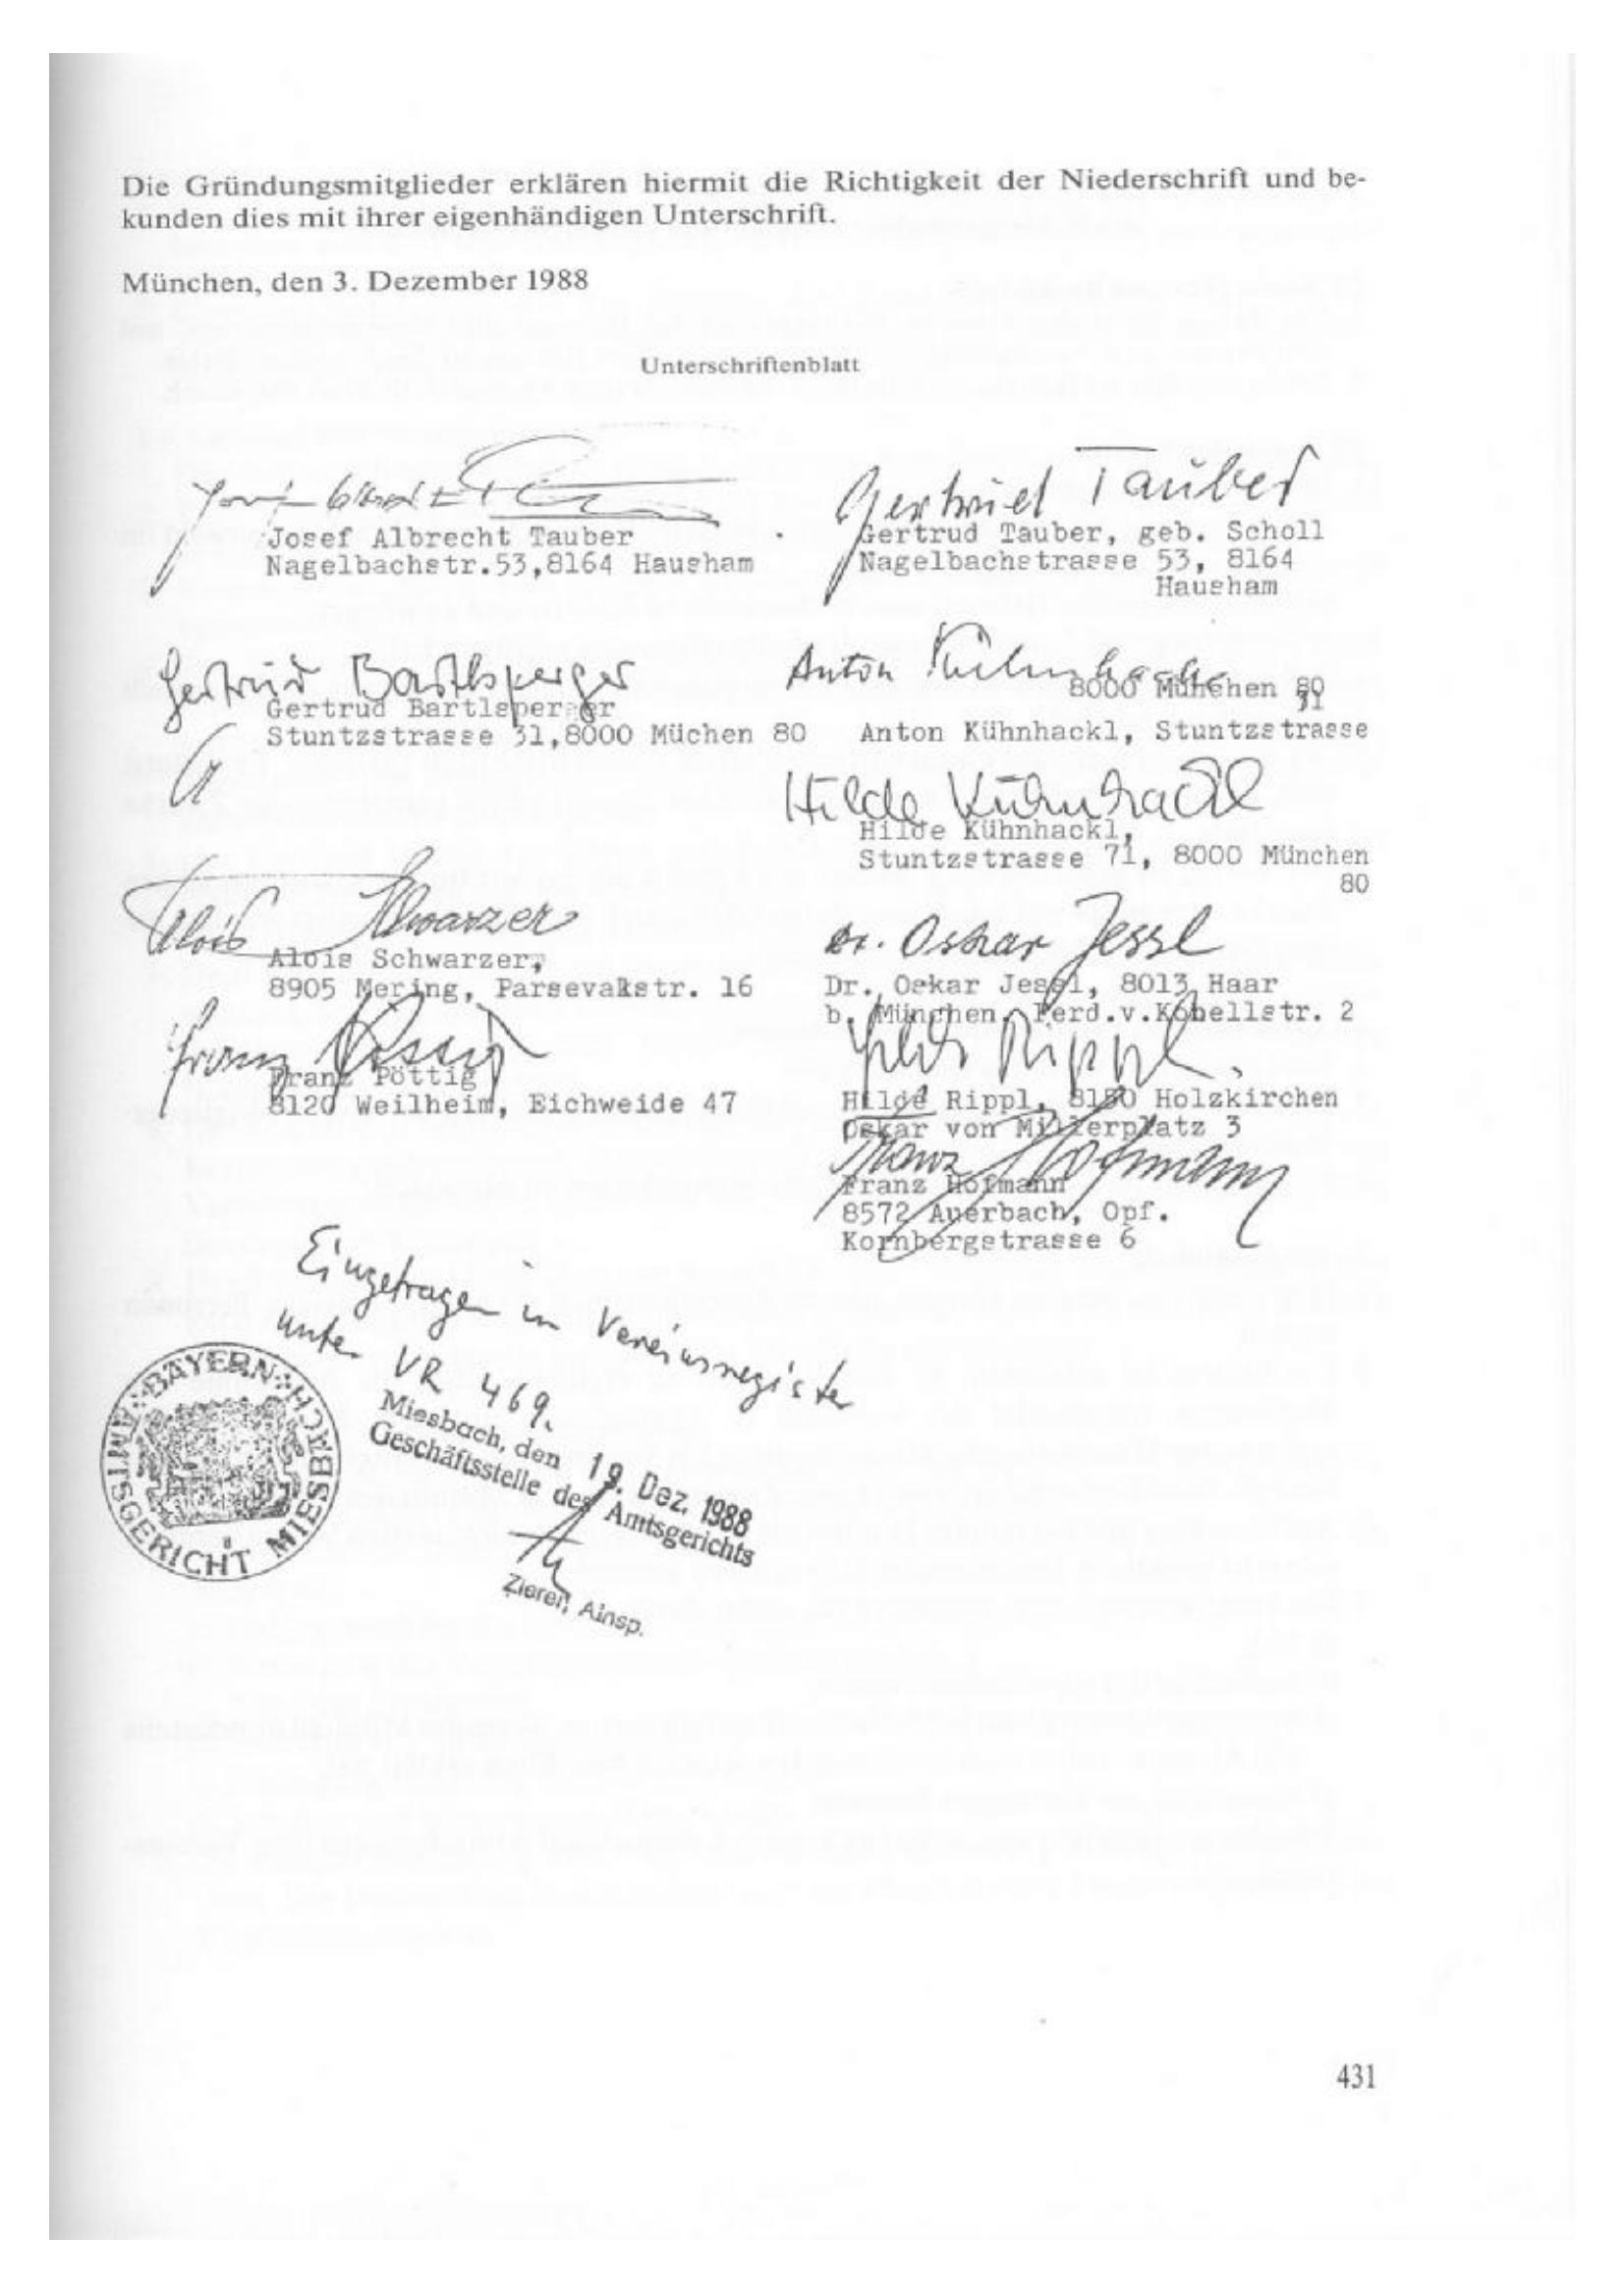 Die Gründungsmitglieder erklären hiermit die Richtigkeit der Niederschrift und be-
kunden dies mit ihrer eigenhändigen Unterschrift.
München, den 3. Dezember 1988
Unterschriftenblatt
Josef Albrecht Tauber
Nagelbachstr.53,8164 Hausham
Gertrud Tauber
Gertrud Tauber, geb. Scholl
Nagelbachstrasse 53, 8164
Hausham
Gertrud Bartlsperger
Gertrud Bartlsperger
Stuntzstrasse 31,8000 Müchen 80
Anton Kühnhackl
8000 München 80
71
Anton Kühnhackl, Stuntzstrasse
Hilde Kühnhackl
Hilde Kühnhackl,
Stuntzstrasse 71, 8000 München
80
Alois Schwarzer
Alois Schwarzer,
8905 Mering, Parsevalstr. 16
Dr. Oskar Jessl
Dr. Oskar Jessl, 8013 Haar
b. München, Ferd.v.Kobellstr. 2
Franz Pöttig
Franz Pöttig
8120 Weilheim, Eichweide 47
Hilde Rippl
Hilde Rippl, 8150 Holzkirchen
Oskar von Millerplatz 3
Franz Hofmann
Franz Hofmann
8572 Auerbach, Opf.
Kornbergstrasse 6
Eingetragen im Vereinsregister
unter VR 469.
Miesbach, den 19. Dez. 1988
Geschäftsstelle des Amtsgerichts
Zierer, Ainsp.
BAYERN
AMTSGERICHT MIESBACH
431